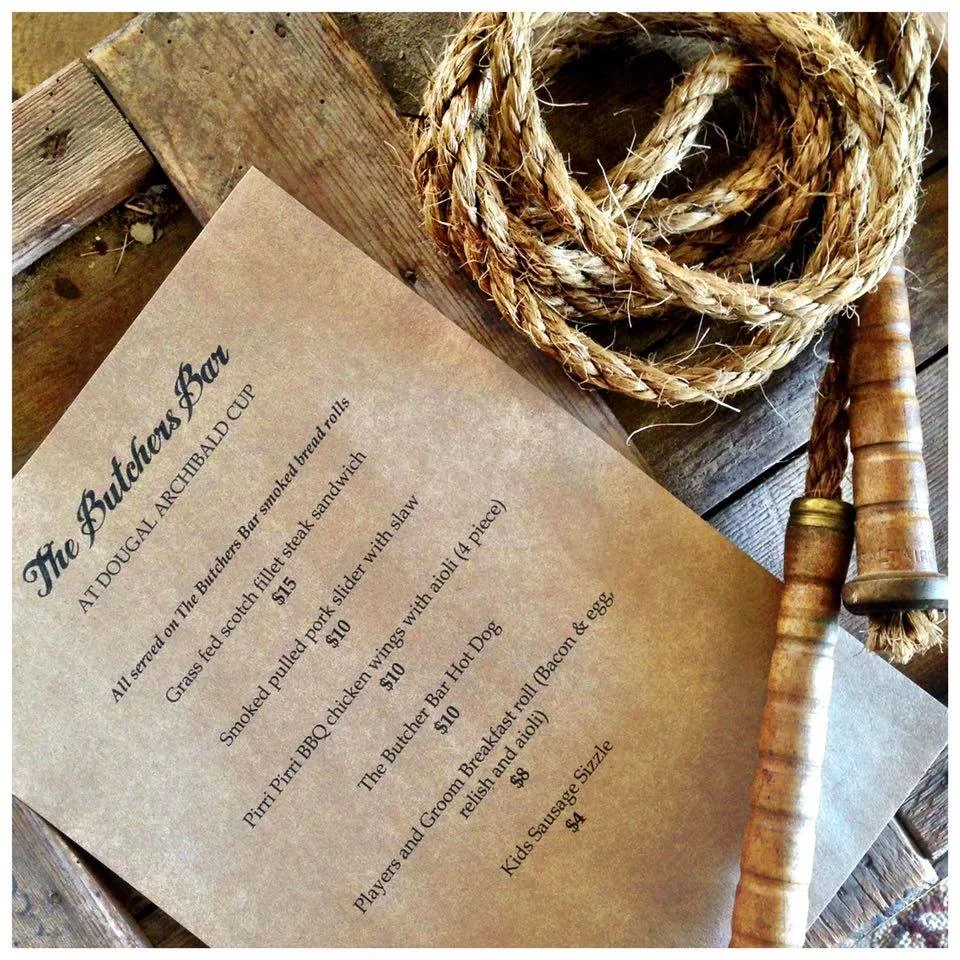 The Butchers Bar
AT DOUGAL ARCHIBALD CUP
All served on The Butchers Bar smoked bread rolls
Grass fed scotch fillet steak sandwich
$15
Smoked pulled pork slider with slaw
$10
Pirri Pirri BBQ chicken wings with aioli (4 piece)
$10
The Butcher Bar Hot Dog
$10
Players and Groom Breakfast roll (Bacon & egg,
relish and aioli)
$8
Kids Sausage Sizzle
$4